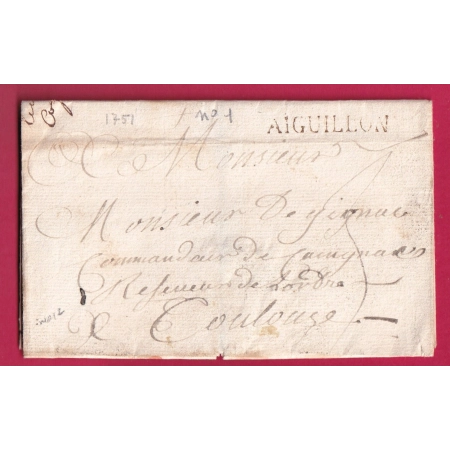 1751 n° 1
AIGUILLON
Monsieur
Monsieur De Gignac
Commandeur de
Receveur de Lordre
A Toulouze